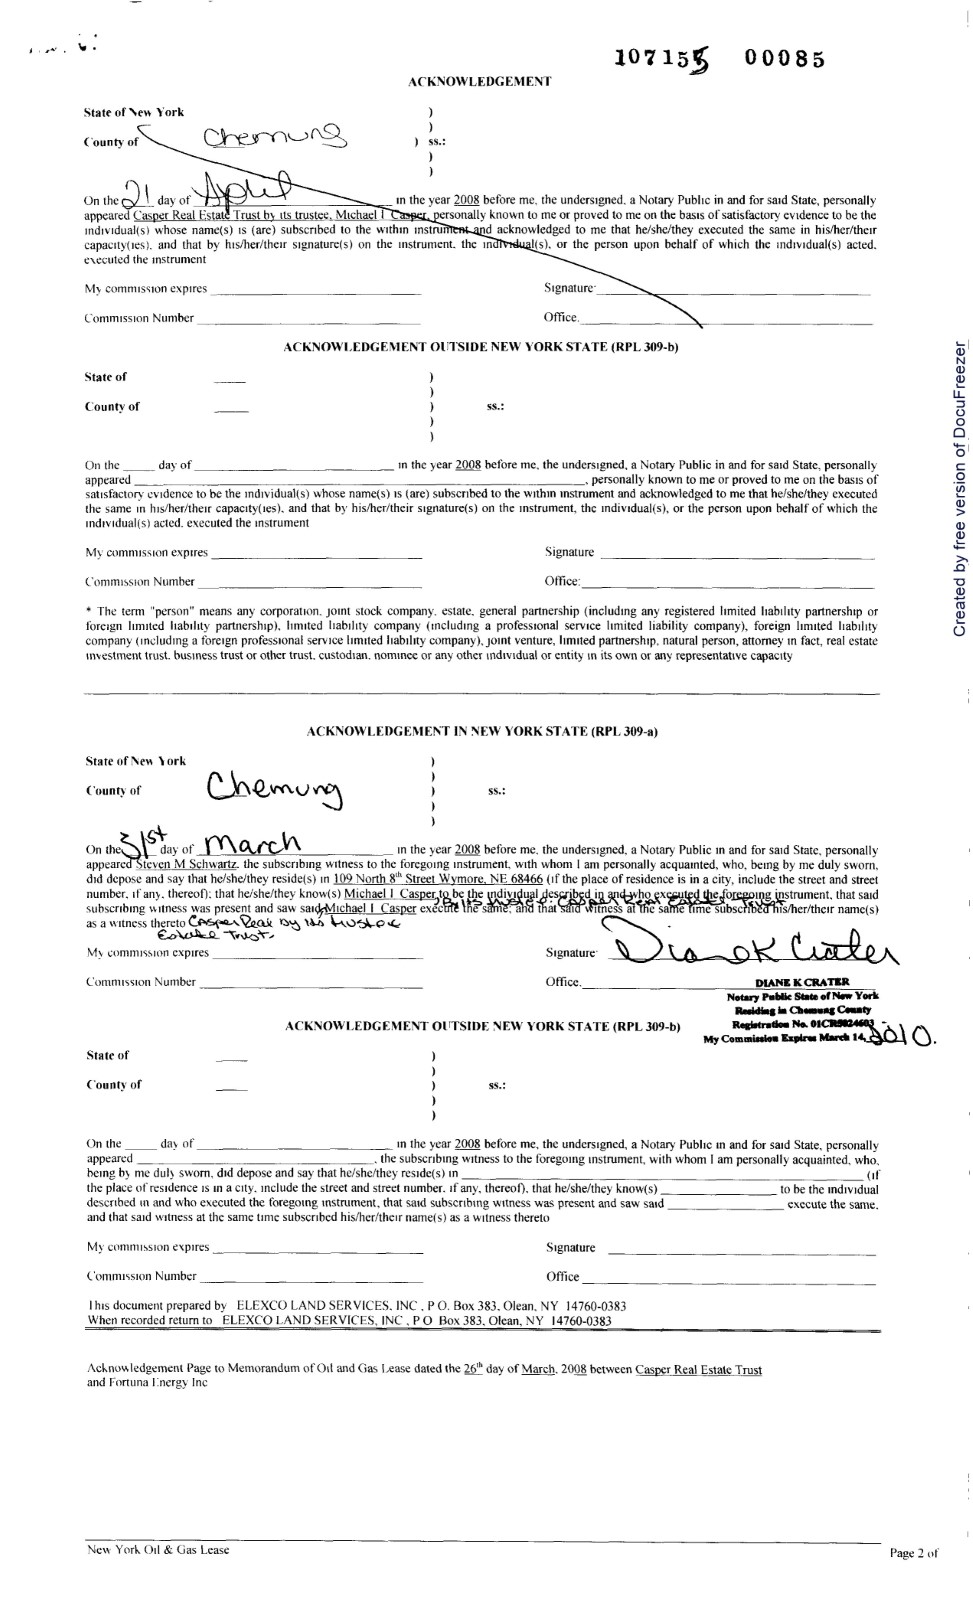 107155 00085
ACKNOWLEDGEMENT
State of New York )
)
County of Chemung ) ss.:
)
)
On the 21 day of April in the year 2008 before me, the undersigned, a Notary Public in and for said State, personally
appeared Casper Real Estate Trust by its trustee, Michael I Casper, personally known to me or proved to me on the basis of satisfactory evidence to be the
individual(s) whose name(s) is (are) subscribed to the within instrument and acknowledged to me that he/she/they executed the same in his/her/their
capacity(ies), and that by his/her/their signature(s) on the instrument, the individual(s), or the person upon behalf of which the individual(s) acted,
executed the instrument
My commission expires Signature
Commission Number Office.
ACKNOWLEDGEMENT OUTSIDE NEW YORK STATE (RPL 309-b)
State of )
)
County of ) ss.:
)
)
On the day of in the year 2008 before me, the undersigned, a Notary Public in and for said State, personally
appeared , personally known to me or proved to me on the basis of
satisfactory evidence to be the individual(s) whose name(s) is (are) subscribed to the within instrument and acknowledged to me that he/she/they executed
the same in his/her/their capacity(ies), and that by his/her/their signature(s) on the instrument, the individual(s), or the person upon behalf of which the
individual(s) acted, executed the instrument
My commission expires Signature
Commission Number Office:
* The term "person" means any corporation, joint stock company, estate, general partnership (including any registered limited liability partnership or
foreign limited liability partnership), limited liability company (including a professional service limited liability company), foreign limited liability
company (including a foreign professional service limited liability company), joint venture, limited partnership, natural person, attorney in fact, real estate
investment trust, business trust or other trust, custodian, nominee or any other individual or entity in its own or any representative capacity
ACKNOWLEDGEMENT IN NEW YORK STATE (RPL 309-a)
State of New York )
)
County of Chemung ) ss.:
)
)
On the 31st day of March in the year 2008 before me, the undersigned, a Notary Public in and for said State, personally
appeared Steven M Schwartz, the subscribing witness to the foregoing instrument, with whom I am personally acquainted, who, being by me duly sworn,
did depose and say that he/she/they reside(s) in 109 North 8th Street Wymore, NE 68466 (if the place of residence is in a city, include the street and street
number, if any, thereof); that he/she/they know(s) Michael I Casper to be the individual described in and who executed the foregoing instrument, that said
, By its trustee. Casper Real Estate Trust
subscribing witness was present and saw said Michael I Casper execute the same; and that said witness at the same time subscribed his/her/their name(s)
as a witness thereto Casper Real By its trustee
Estate Trust.
My commission expires Signature Diane K Crater
Commission Number Office. DIANE K CRATER
Notary Public State of New York
Residing in Chemung County
Registration No. 01CR5024603
My Commission Expires March 14, 2010.
ACKNOWLEDGEMENT OUTSIDE NEW YORK STATE (RPL 309-b)
State of )
)
County of ) ss.:
)
)
On the day of in the year 2008 before me, the undersigned, a Notary Public in and for said State, personally
appeared , the subscribing witness to the foregoing instrument, with whom I am personally acquainted, who,
being by me duly sworn, did depose and say that he/she/they reside(s) in (if
the place of residence is in a city, include the street and street number, if any, thereof), that he/she/they know(s) to be the individual
described in and who executed the foregoing instrument, that said subscribing witness was present and saw said execute the same,
and that said witness at the same time subscribed his/her/their name(s) as a witness thereto
My commission expires Signature
Commission Number Office
This document prepared by ELEXCO LAND SERVICES, INC , P O. Box 383, Olean, NY 14760-0383
When recorded return to ELEXCO LAND SERVICES, INC , P O Box 383, Olean, NY 14760-0383
Acknowledgement Page to Memorandum of Oil and Gas Lease dated the 26th day of March, 2008 between Casper Real Estate Trust
and Fortuna Energy Inc
New York Oil & Gas Lease Page 2 of
Created by free version of DocuFreezer